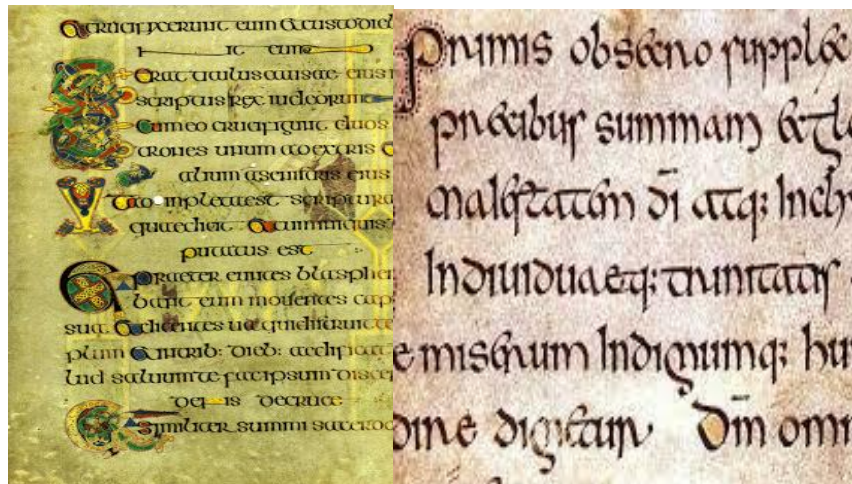 crucifixerunt eum et custodieb
eum
Erat titulus causae eius
scriptus rex iudeorum
Et cum eo crucifigunt duos
trones unum a dextris
alium a senistris eius
impletaest scriptura
quae dicit Et cum iniquis
putatus est
Et praeter euntes blasphe
bant eum mouentes cap
sua Et dicentes ua qui distruit te
plum & in trib: dieb: aedificat
saluum te fac ipsum discen
dens decruce
Similiter summi sacerdo
Primis obsecro supplex
precibus summam & glo
maiestatem dī atq; Incly
Indiuiduaeq; trinitatis
e miserum Indignumq; hu
dine dignetur Dm̄ omn